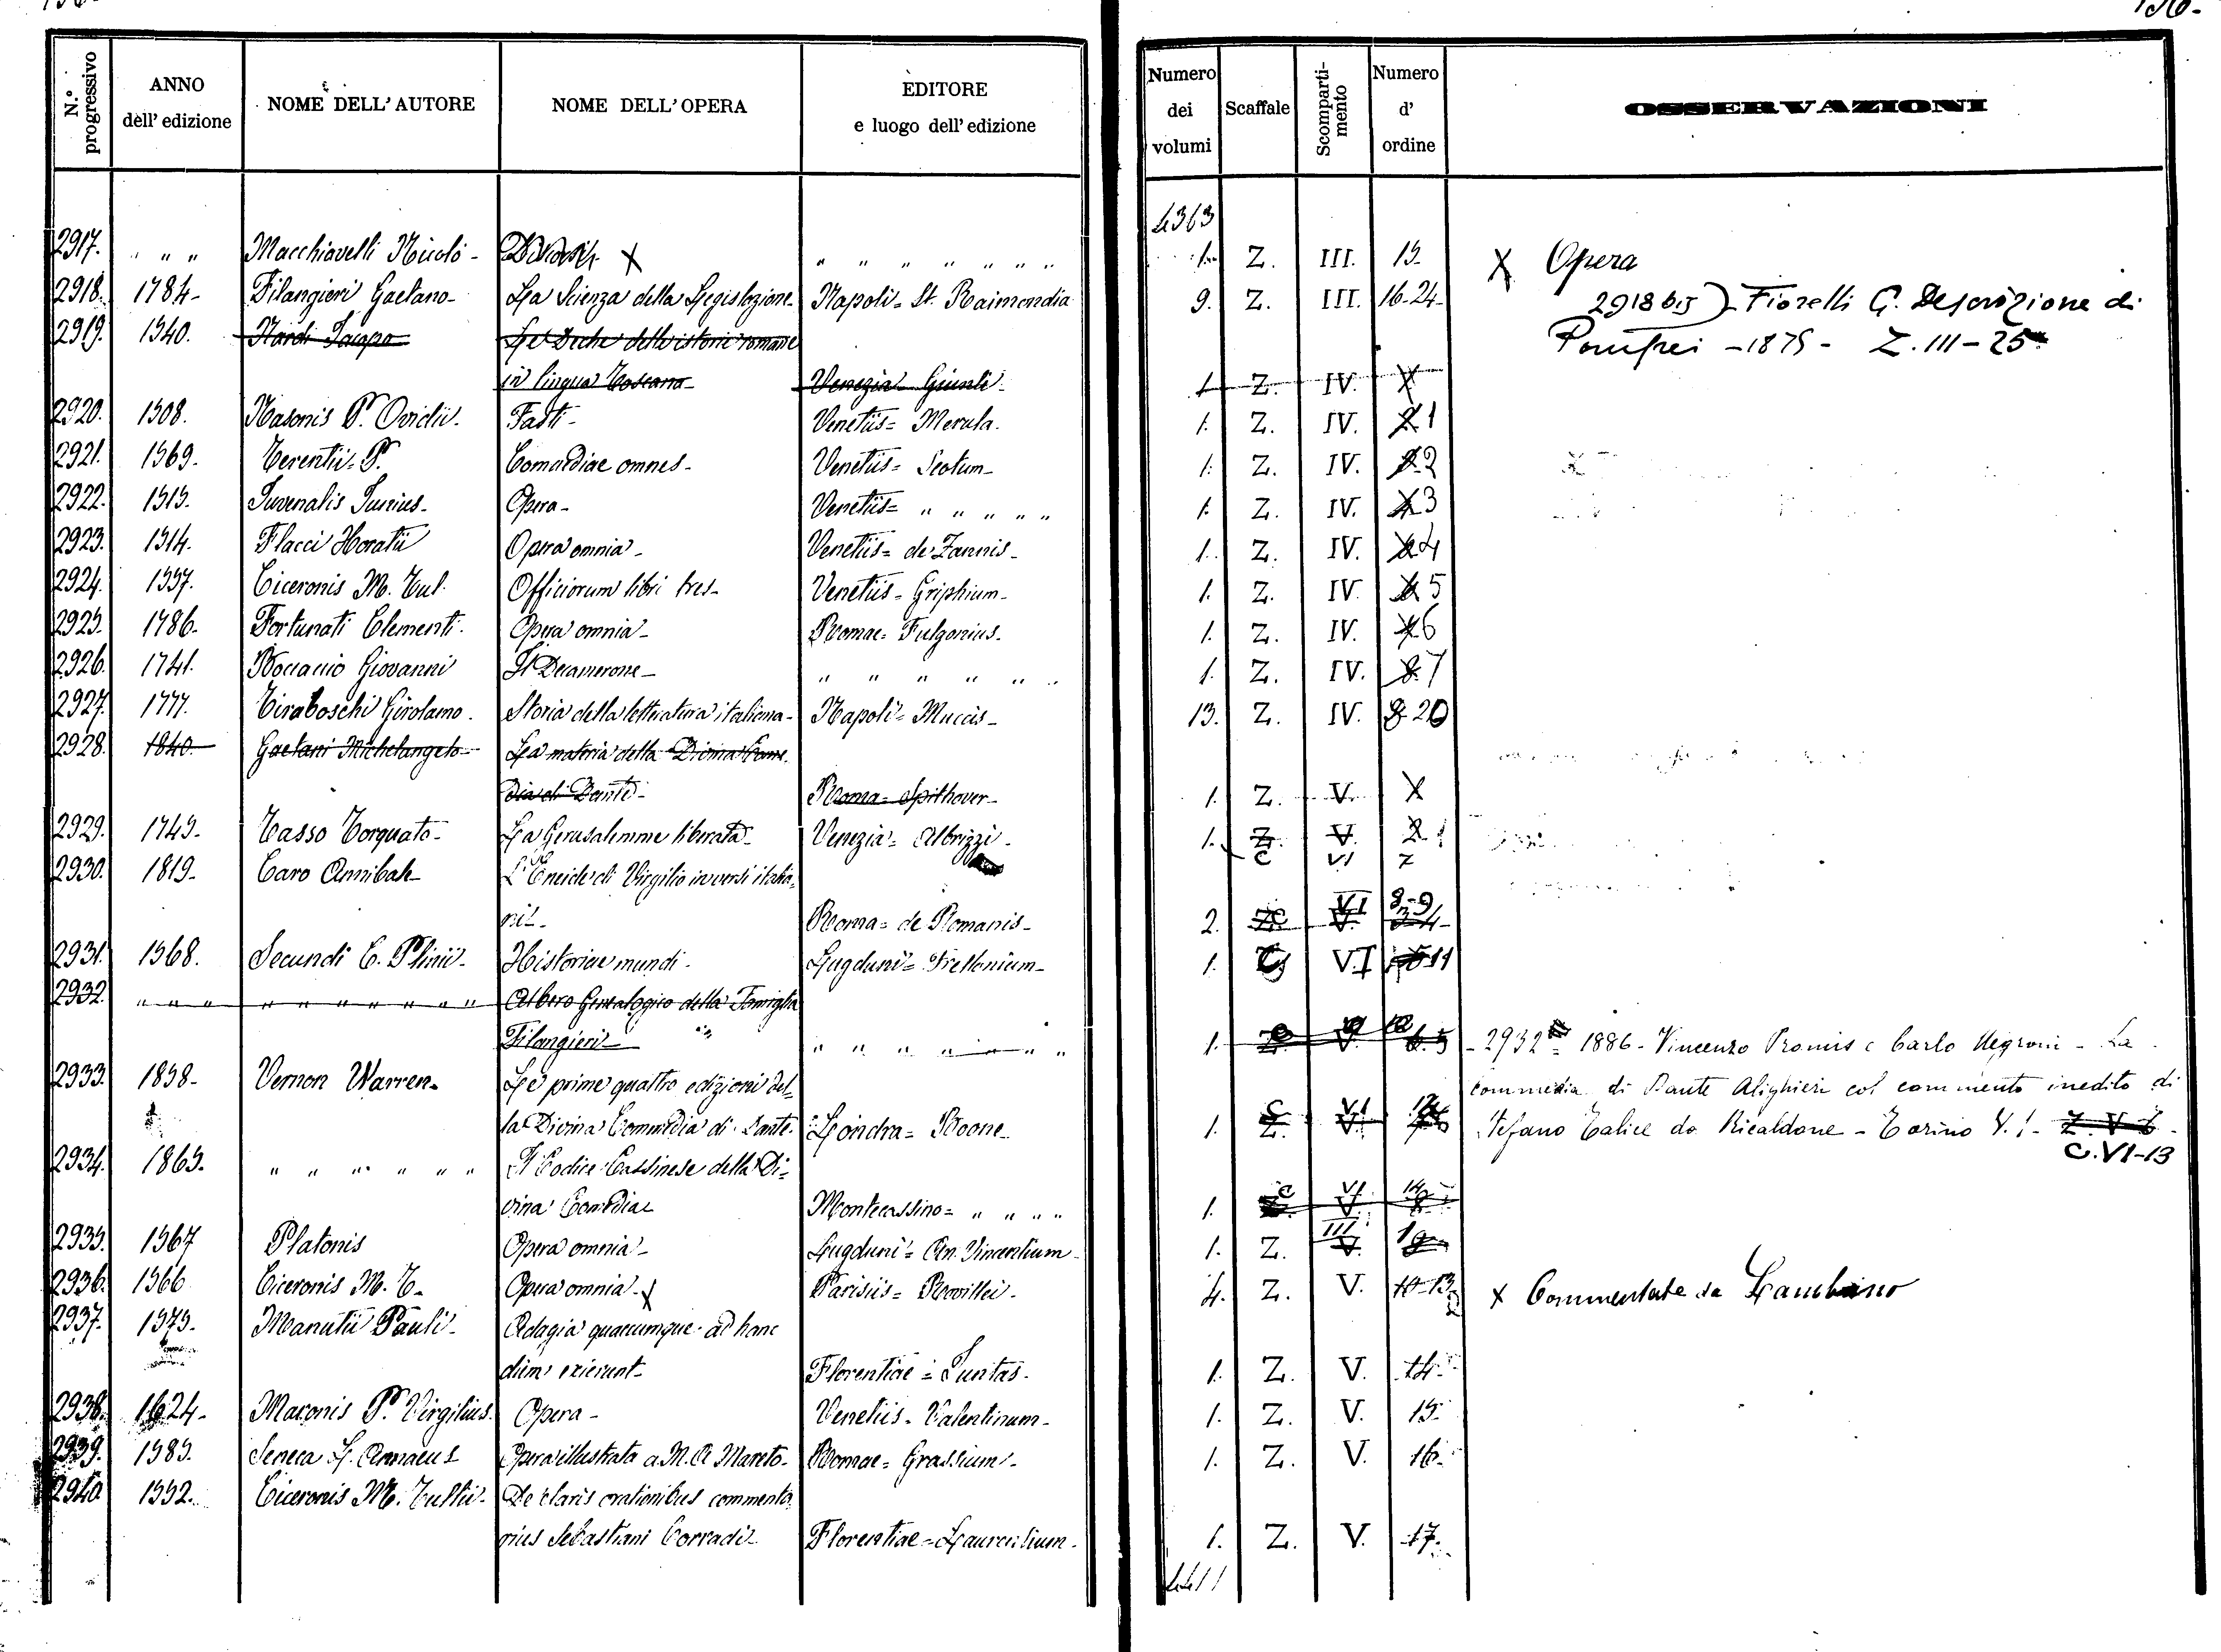 156.
N.° progressivo ANNO dell' edizione NOME DELL' AUTORE NOME DELL' OPERA EDITORE e luogo dell' edizione Numero dei volumi Scaffale Scompartimento Numero d' ordine OSSERVAZIONI
4363
2917. " " " Macchiavelli Nicolò - X " " " " " " " 1. Z. III. 15. X Opera
2918. 1784- Filangieri Gaetano- La Scienza della Legislazione- Napoli= St. Raimondia 9. Z. III. 16-24- 2918 bis) Fiorelli G. Descrizione di
2919. 1540. Nardi Jacopo Le Deche delle istorie romane Pompei - 1875 - Z. III - 25
in lingua Toscana- Venezia- Giunti- 1 Z. IV.
2920. 1508. Nasonis P. Ovidii. Fasti- Venetiis= Merula. 1. Z. IV. 1
2921. 1569. Terentii- P. Comaediae omnes- Venetiis= Scotum- 1. Z. IV. 2
2922. 1515. Juvenalis Junius- Opera- Venetiis= " " " " " 1. Z. IV. 3
2923. 1514. Flacci Horatii Opera omnia- Venetiis= de Zannis- 1. Z. IV. 4
2924. 1557. Ciceronis M. Tul. Officiorum libri tres- Venetiis= Griphium- 1. Z. IV. 5
2925. 1786. Fortunati Clementi. Opera omnia- Romae= Fulgonius. 1. Z. IV. 6
2926. 1741. Boccaccio Giovanni Il Decamerone- " " " " " " 1. Z. IV. 7
2927. 1777. Tiraboschi Girolamo. Storia della letteratura italiana- Napoli= Muccis- 13. Z. IV. 8-20
2928. 1840. Gaetani Michelangelo La materia della Divina Come
dia di Dante- Roma- Spithover- 1. Z. V.
2929. 1745- Tasso Torquato- La Gerusalemme liberata- Venezia= Albrizzi- 1. Z. V.
C VI 7
2930. 1819- Caro Annibale- L'Eneide di Virgilio in versi italia-
ni- Roma= de Romanis- 2. VI 8-9
2931. 1568. Secundi C. Plinii- Historiae mundi- Lugduni= Frellonium- 1. C VI 11
2932. " " " " " " " " " " " Albero Genealogico della Famiglia
Filangieri- " " " " " " " 1. Z. V. 2932 1886- Vincenzo Promis e Carlo Negroni - La
2933. 1858- Vernon Warren- Le prime quattro edizioni del- Commedia di Dante Alighieri col commento inedito di
la Divina Commedia di Dante. Londra= Boone- 1. C Z. VI V. Stefano Talice da Ricaldone - Torino V. 1- Z. V-6
C. VI-13
2934. 1865. " " " " " " Il Codice Cassinese della Di-
vina Comedia Montecassino= " " " " 1. C VI 14
2935. 1567 Platonis Opera omnia- Lugduni= An. Vincentium- 1. Z. III V.
2936. 1566 Ciceronis M. T- Opera omnia- X Parisiis= Rovillei- 4. Z. V. 10-13 x Commentate da Lambino
2937. 1575. Manutii Pauli- Adagia quaecumque ad hanc
diem exierunt- Florentiae= Juntas. 1. Z. V. 14.
2938. 1624- Maronis P. Virgilius. Opera- Venetiis- Valentinum- 1. Z. V. 15.
2939. 1585. Seneca L. Annaeus Opera illustrata a M. A. Mureto- Romae= Grassium- 1. Z. V. 16.
2940 1552. Ciceronis M. Tullii- De claris orationibus commenta
rius Sebastiani Corradi- Florentiae= 1. Z. V. 17.
4411